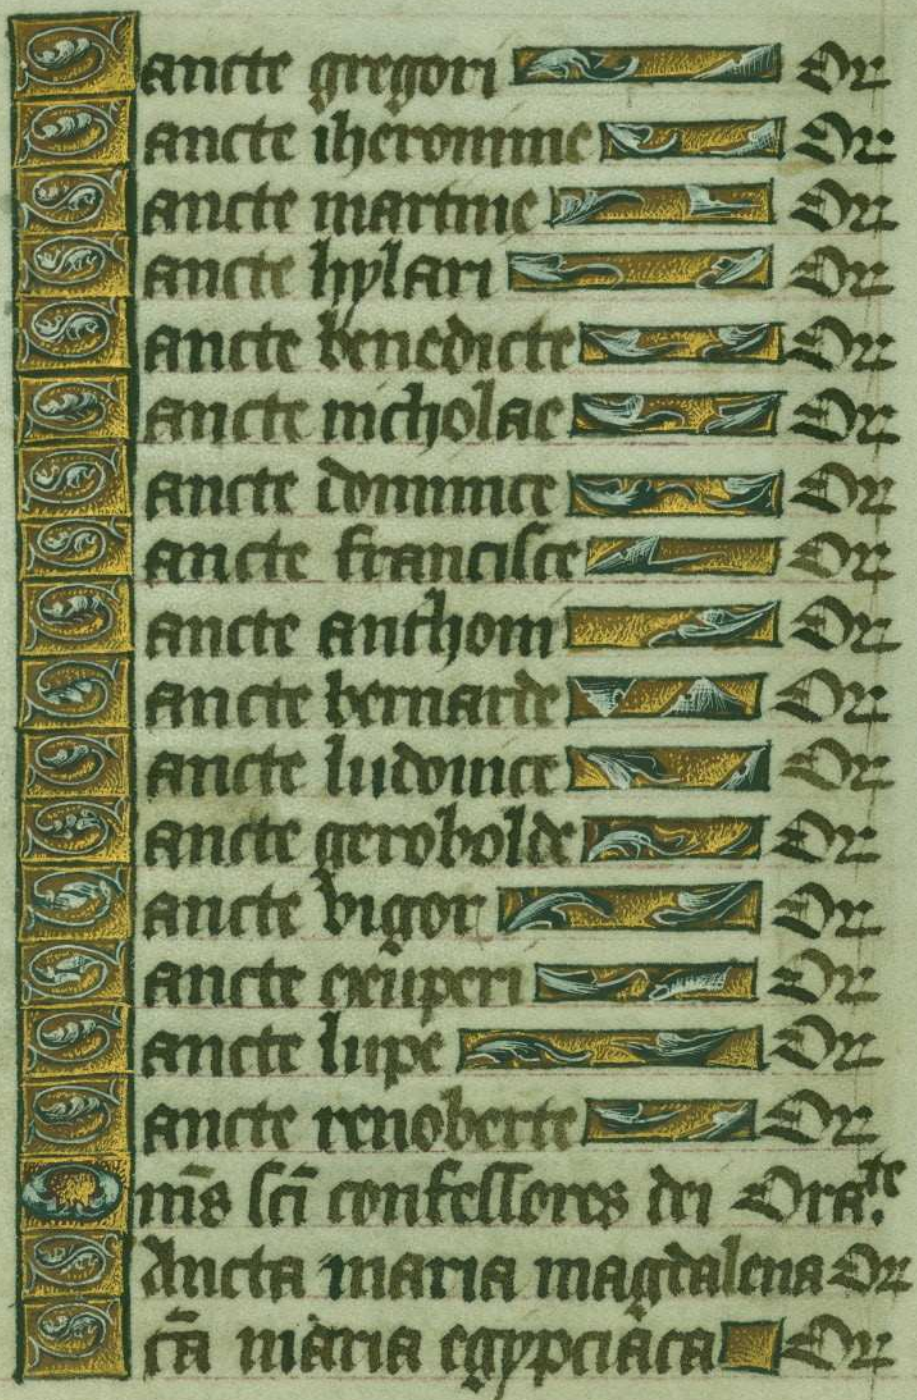 Sancte gregori Or
Sancte iheronime Or
Sancte martine Or
Sancte hylari Or
Sancte benedicte Or
Sancte nicholae Or
Sancte dominice Or
Sancte francisce Or
Sancte anthoni Or
Sancte bernarde Or
Sancte ludouice Or
Sancte gerobolde Or
Sancte vigor Or
Sancte exuperi Or
Sancte lupe Or
Sancte renoberte Or
Om̄s sc̄i confessores dei Orate.
Sancta maria magdalena Or
Sc̄a maria egypciaca Or